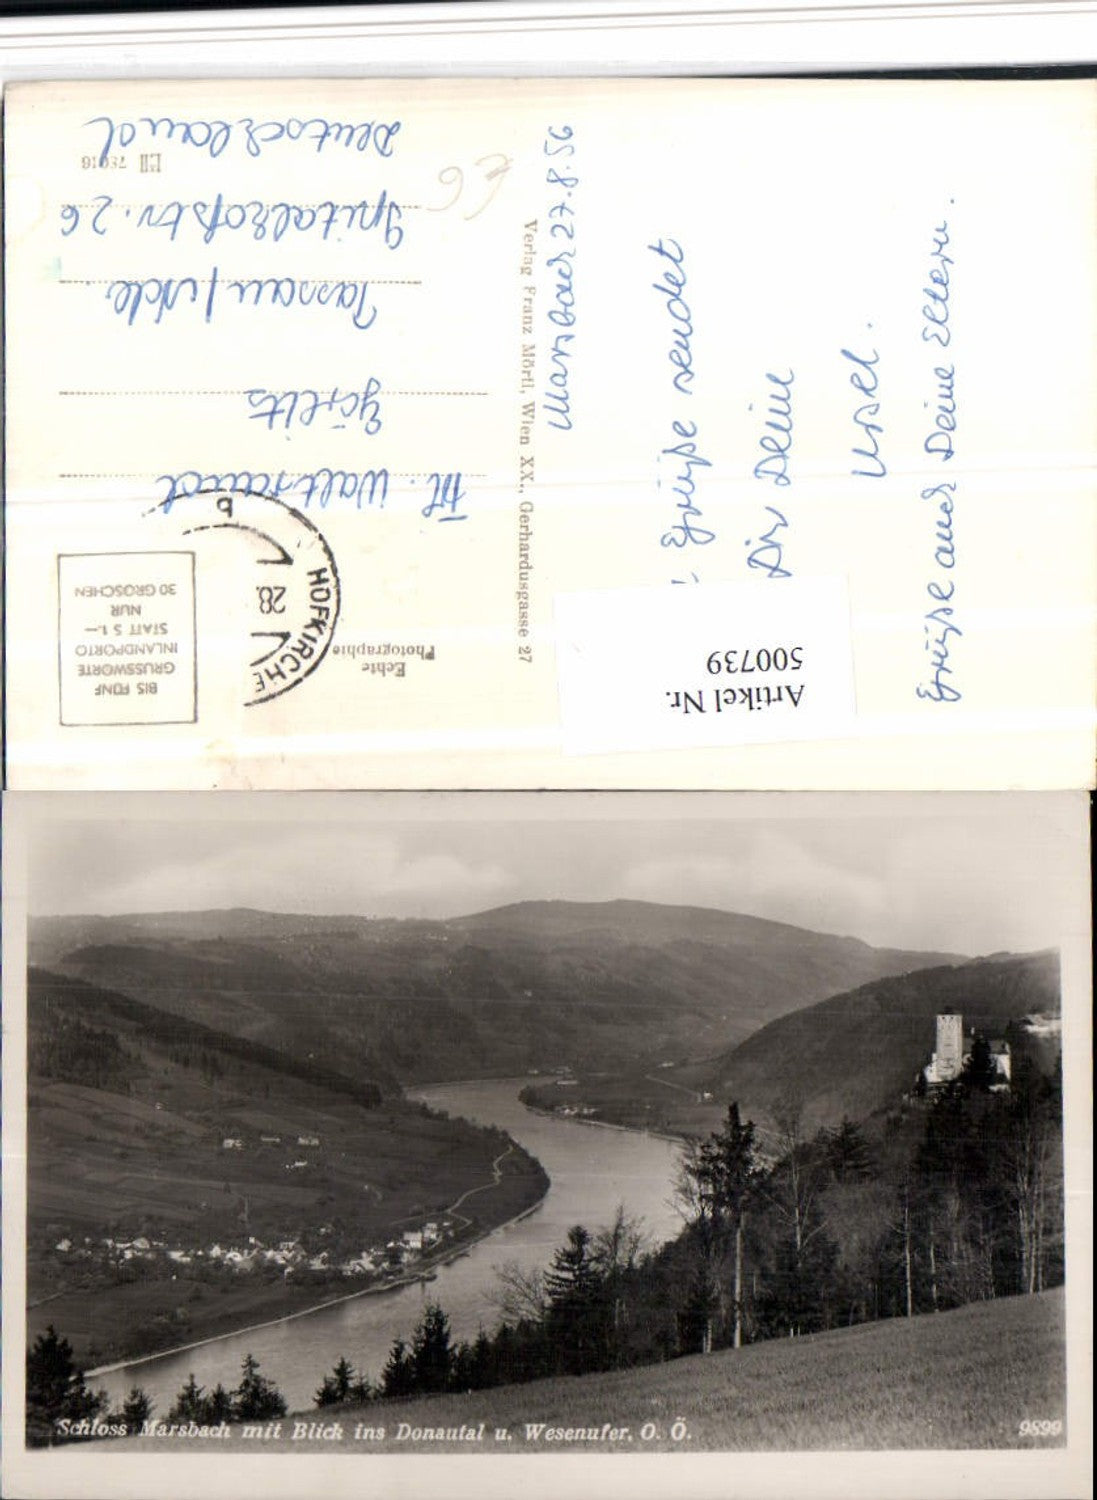 Marsbach 27.8.56
Grüße sendet
Dir Deine
Ursel.
Grüße auch Deine Eltern.
Verlag Franz Mörtl, Wien XX., Gerhardusgasse 27
Echte
Photographie
BIS FÜNF
GRUSSWORTE
INLANDPORTO
STATT S 1.—
NUR
30 GROSCHEN
HOFKIRCHE
28
b
Frl. Waltraud
Görlitz
Passau / Ndb.
Spitalhofstr. 26
Deutschland
€6
Artikel Nr.
500739
Schloss Marsbach mit Blick ins Donautal u. Wesenufer, O. Ö.
9899